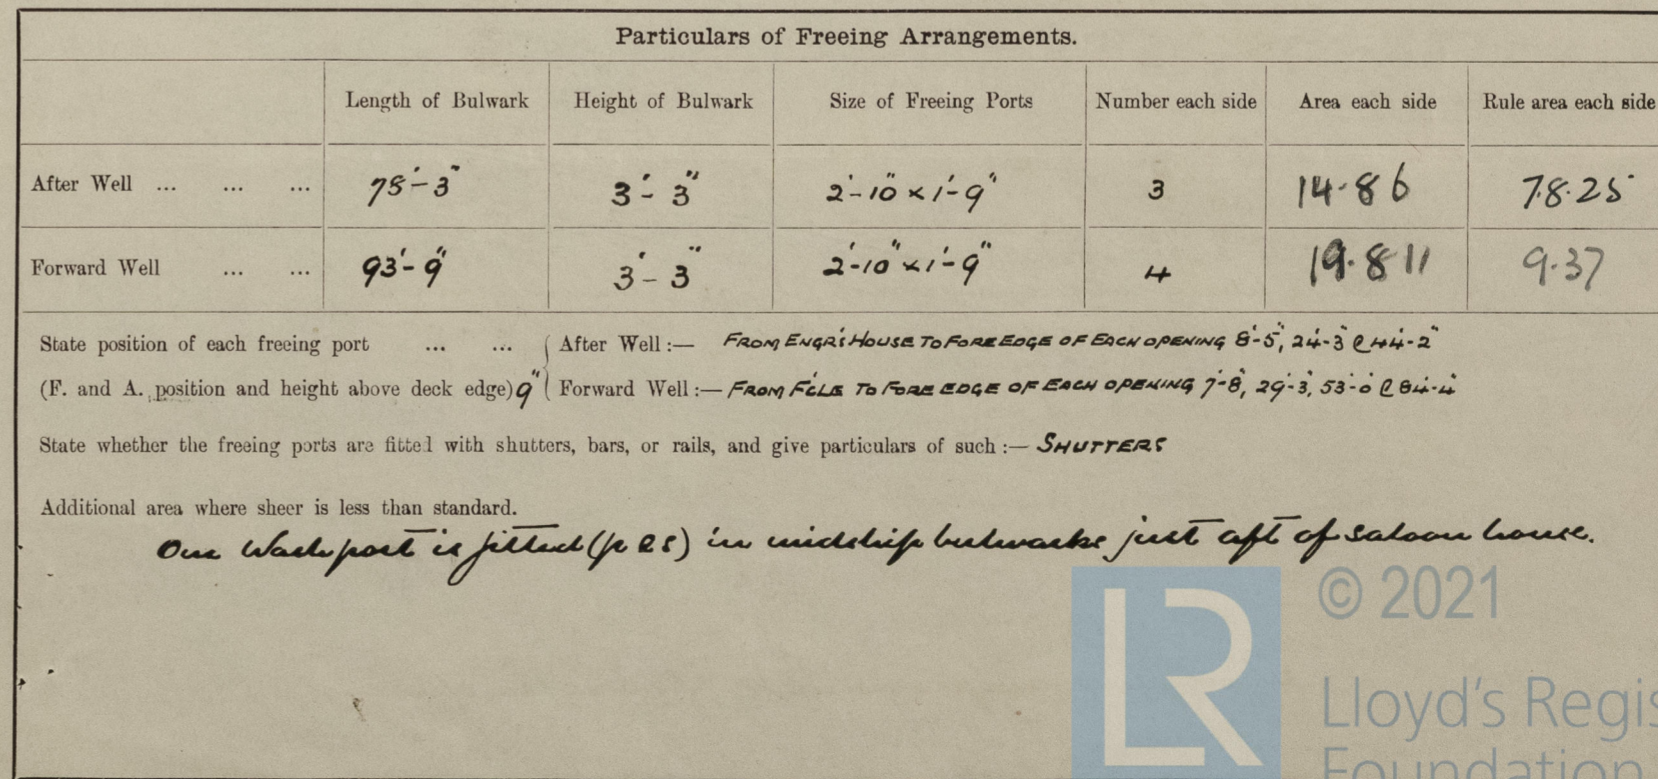 Particulars of Freeing Arrangements.
Length of Bulwark Height of Bulwark Size of Freeing Ports Number each side Area each side Rule area each side
After Well ... ... ... 78'-3" 3'-3" 2'-10" x 1'-9" 3 14.86 7.8.25
Forward Well ... ... 93'-9" 3'-3" 2'-10" x 1'-9" 4 19.811 9.37
State position of each freeing port ... ... After Well :— FROM ENGRS HOUSE TO FORE EDGE OF EACH OPENING 8'-5", 24'-3" & 44'-2"
(F. and A. position and height above deck edge) 9" Forward Well :— FROM F'CLE TO FORE EDGE OF EACH OPENING 7'-8", 29'-3, 53'-0 & 84'-4
State whether the freeing ports are fitted with shutters, bars, or rails, and give particulars of such :— SHUTTERS
Additional area where sheer is less than standard.
One Wash port is fitted (p & s) in midship bulwarks just aft of saloon house.
LR
© 2021
Lloyd's Regis
Foundation